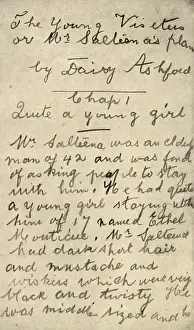 The Young Visiters
or Mr Salteena's plan
by Daisy Ashford
Chap 1
Quite a young girl
Mr Salteena was an elderly
man of 42 and was fond
of asking people to stay
with him. He had quite
a young girl staying with
him of 17 named Ethel
Monticue. Mr Salteena
had dark short hair
and mustache and
wiskers which were very
black and twisty He
was middle sized and he